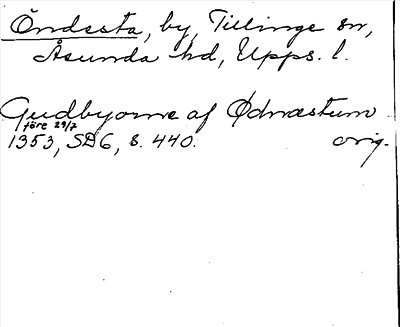 Öndesta, by, Tillinge sn,
Åsunda hd, Upps. l.
Gudbyorne af Ødnæstum
före 29/7
1353, SD 6, s. 440. orig.